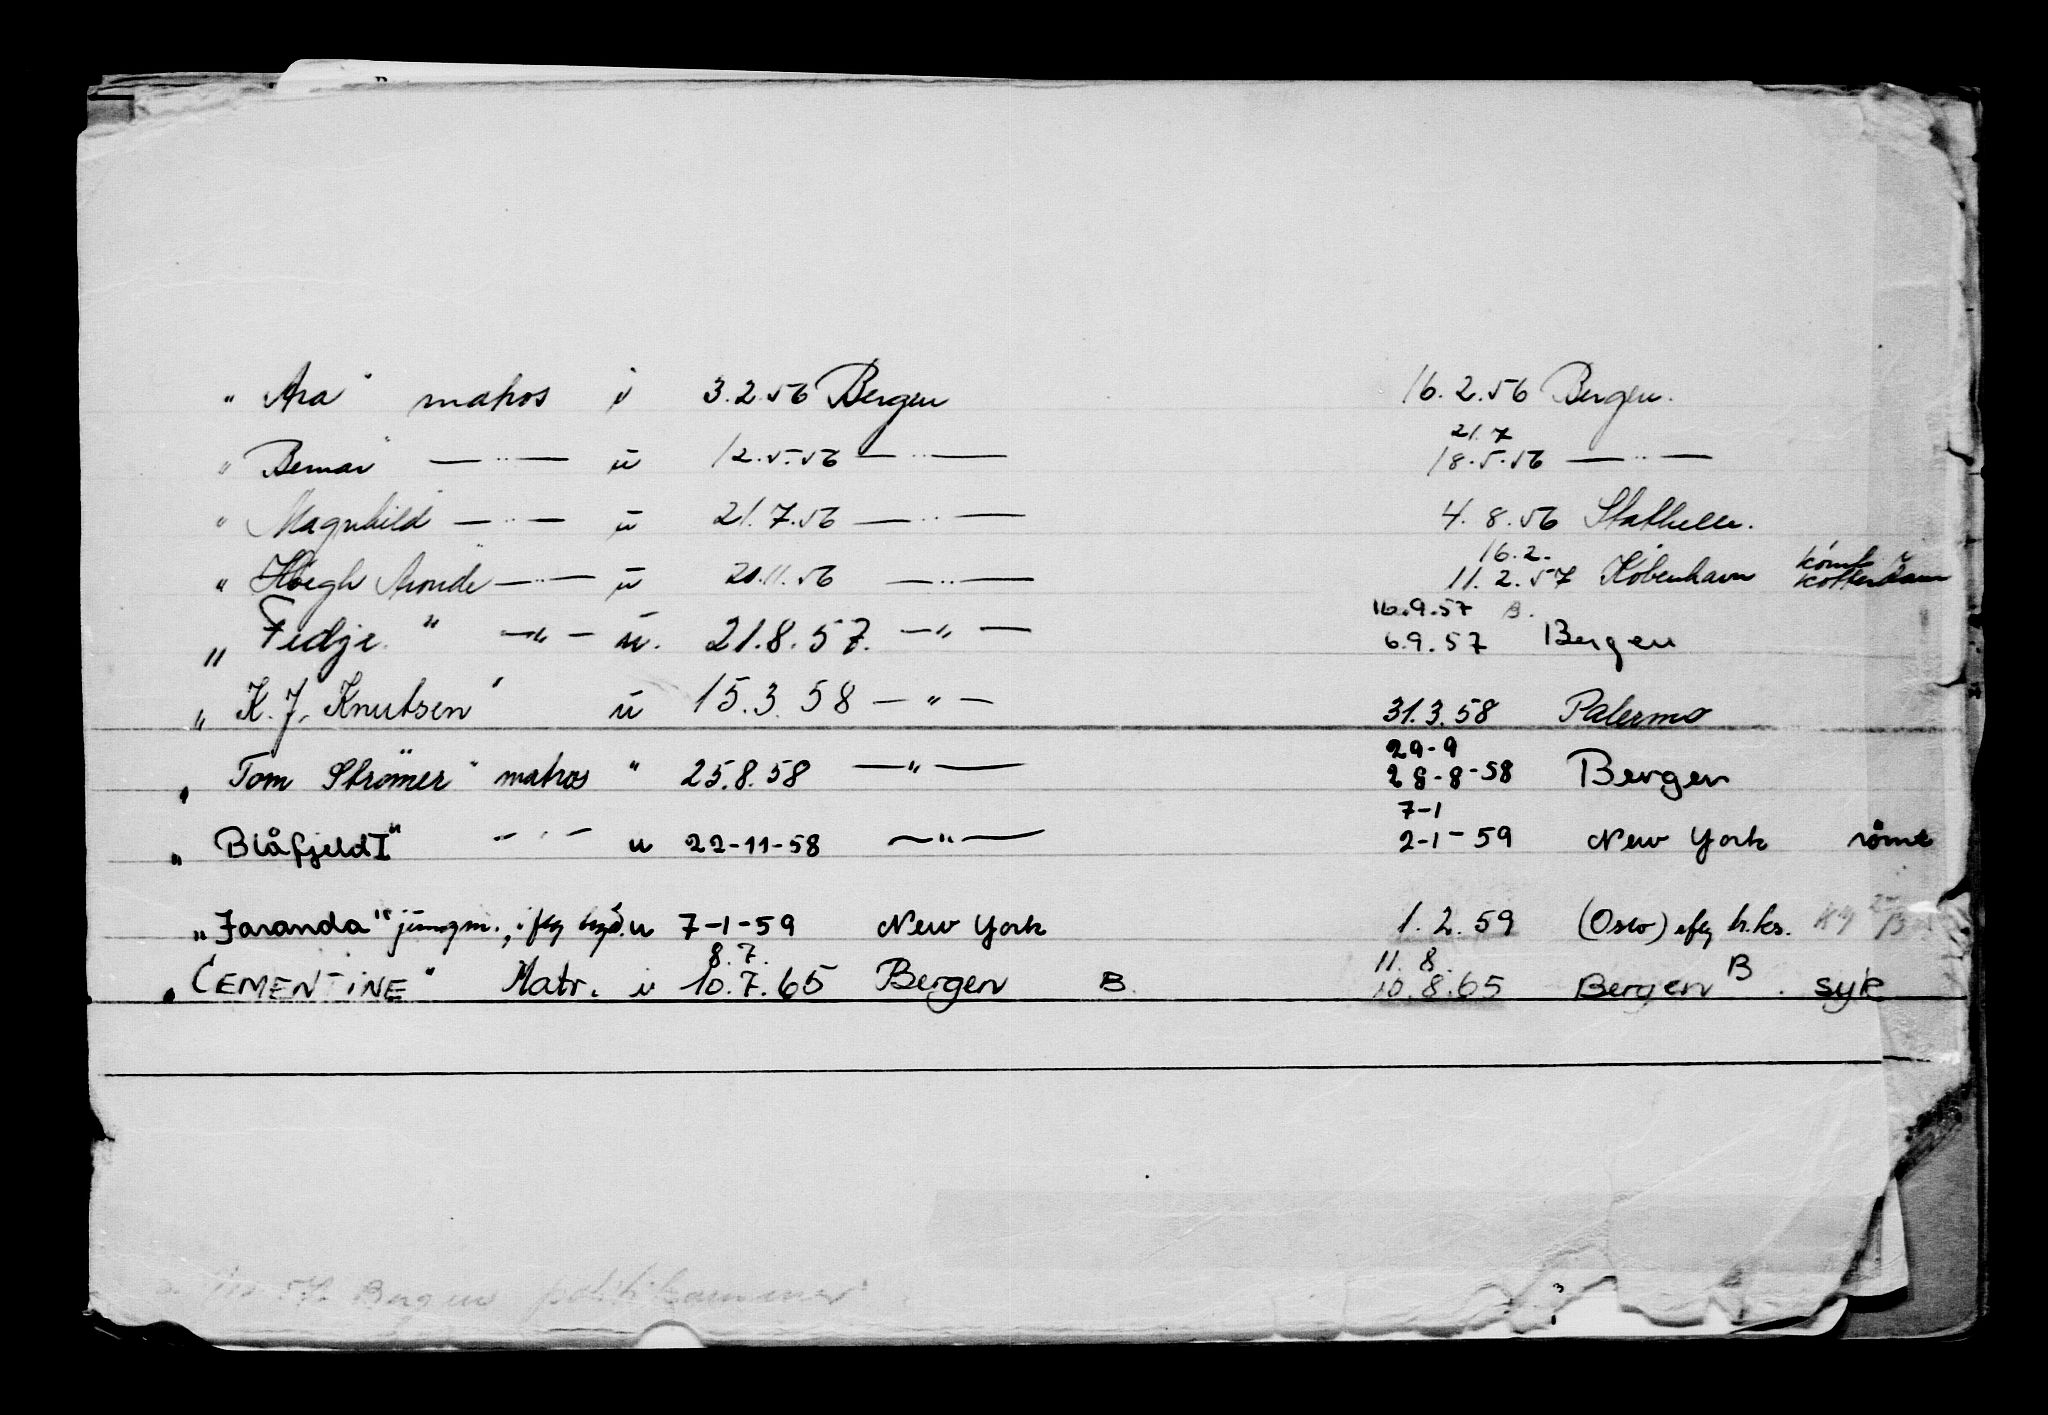 „ Ara" matros u 3.2.56 Bergen 16.2.56 Bergen.
21.7
" Bemar" — " — u 12.5.56 — " — 18.5.56 — " —
" Magnhild — " — u 21.7.56 — " — 4.8.56 Stathelle.
16.2.
" Høegh Aronde — " — u 20.11.56 — " — 11.2.57 København rømt Rotterdam
16.9.57 B.
„ Fedje" — " — u. 21.8.57. — " — 6.9.57 Bergen
„ K.J. Knutsen" u 15.3.58 — " — 31.3.58 Palermo
29-9
„ Tom Strømer" matros " 25.8.58 — " — 28-8-58 Bergen
7-1
„ Blåfjeld I" — " — u 22-11-58 — " — 2-1-59 New York rømt
„Taranda" jungm., u 7-1-59 New York 1.2.59 (Oslo)
8.7. 11.8.
„CEMENTINE" Matr. u 10.7.65 Bergen B. 10.8.65 Bergen B. syk
Bergen politikammer